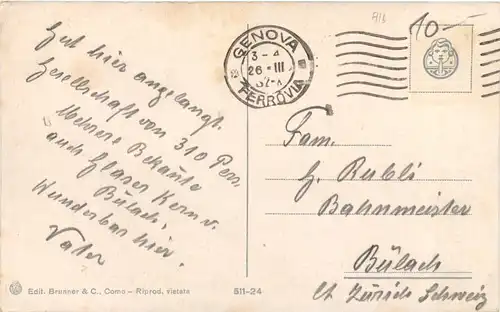 Gut hier angelangt.
Gesellschaft von 310 Pers.
Mehrere Bekannte
auch Glaser Kern v.
Bülach.
Wunderbar hier.
Vater
GENOVA
3-4
26·III
32-X
FERROVIA
713
10—
T
Fam.
H. Rubli
Bahnmeister
Bülach
Ct. Zürich Schweiz
Edit. Brunner & C., Como - Riprod. vietata
511-24